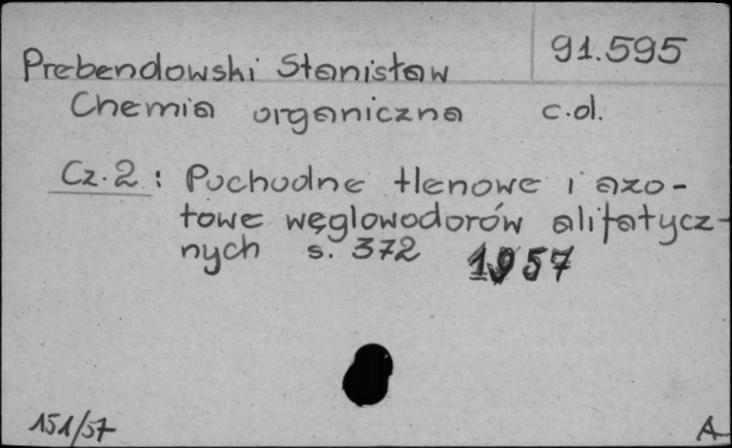 91.595
Prebendowski Stanisław
Chemia organiczna c.d.
Cz. 2 : Pochodne tlenowe i azo-
towe węglowodorów alifatycz-
nych s. 372 1957
151/57 A